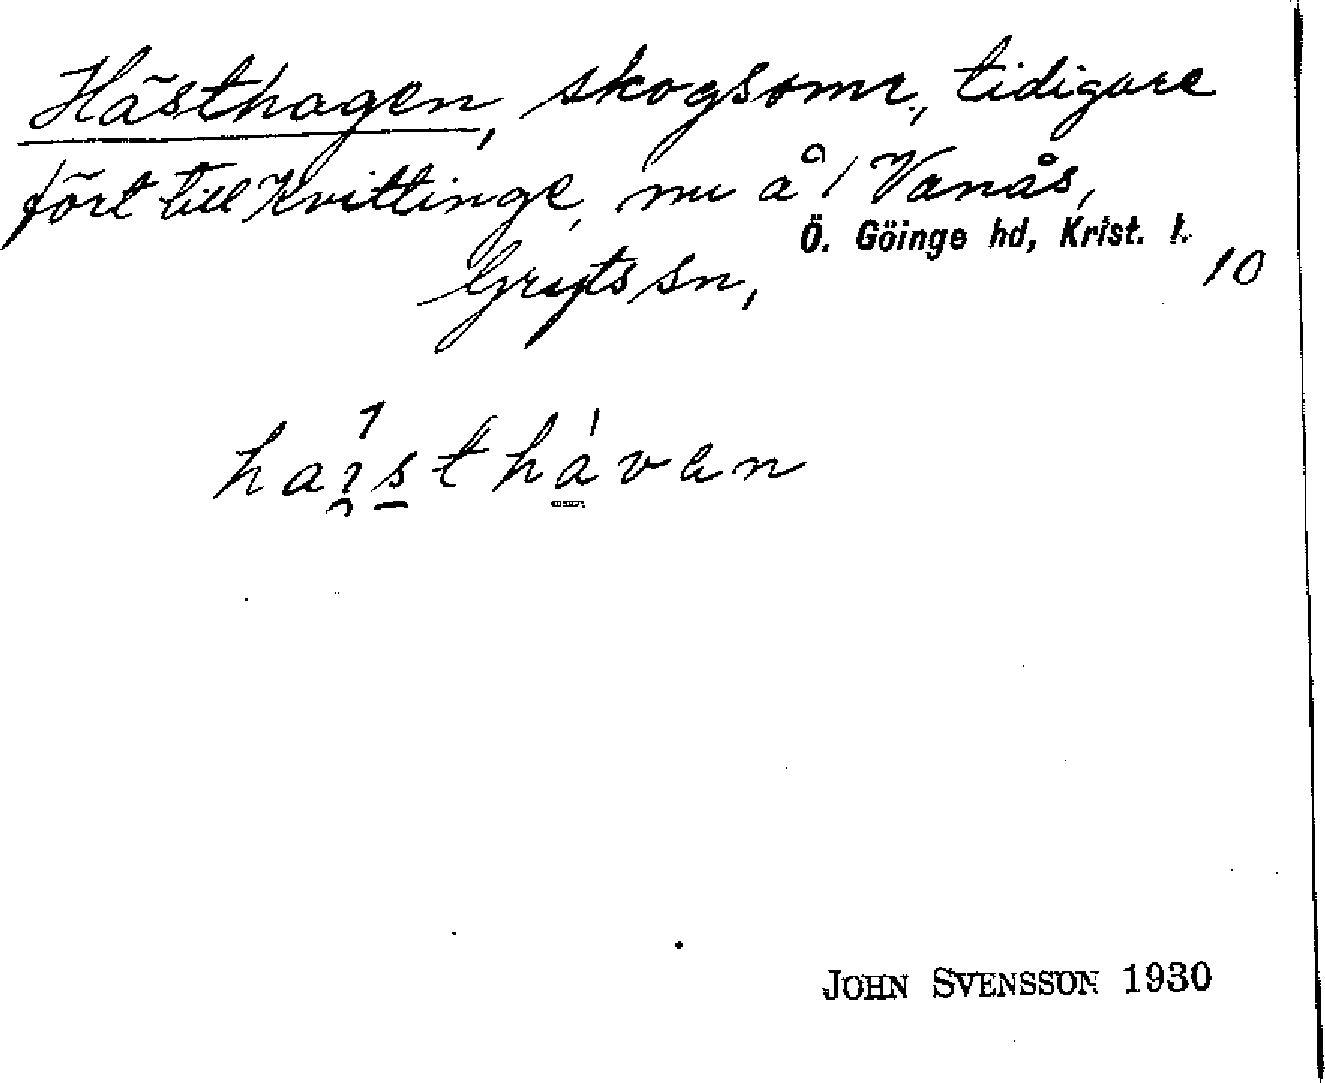 Hästhagen, skogsomr., tidigare
fört till Kvittinge, nu å / Vanås,
Ö. Göinge hd, Krist. l.
Gryts sn, 10
JOHN SVENSSON 1930